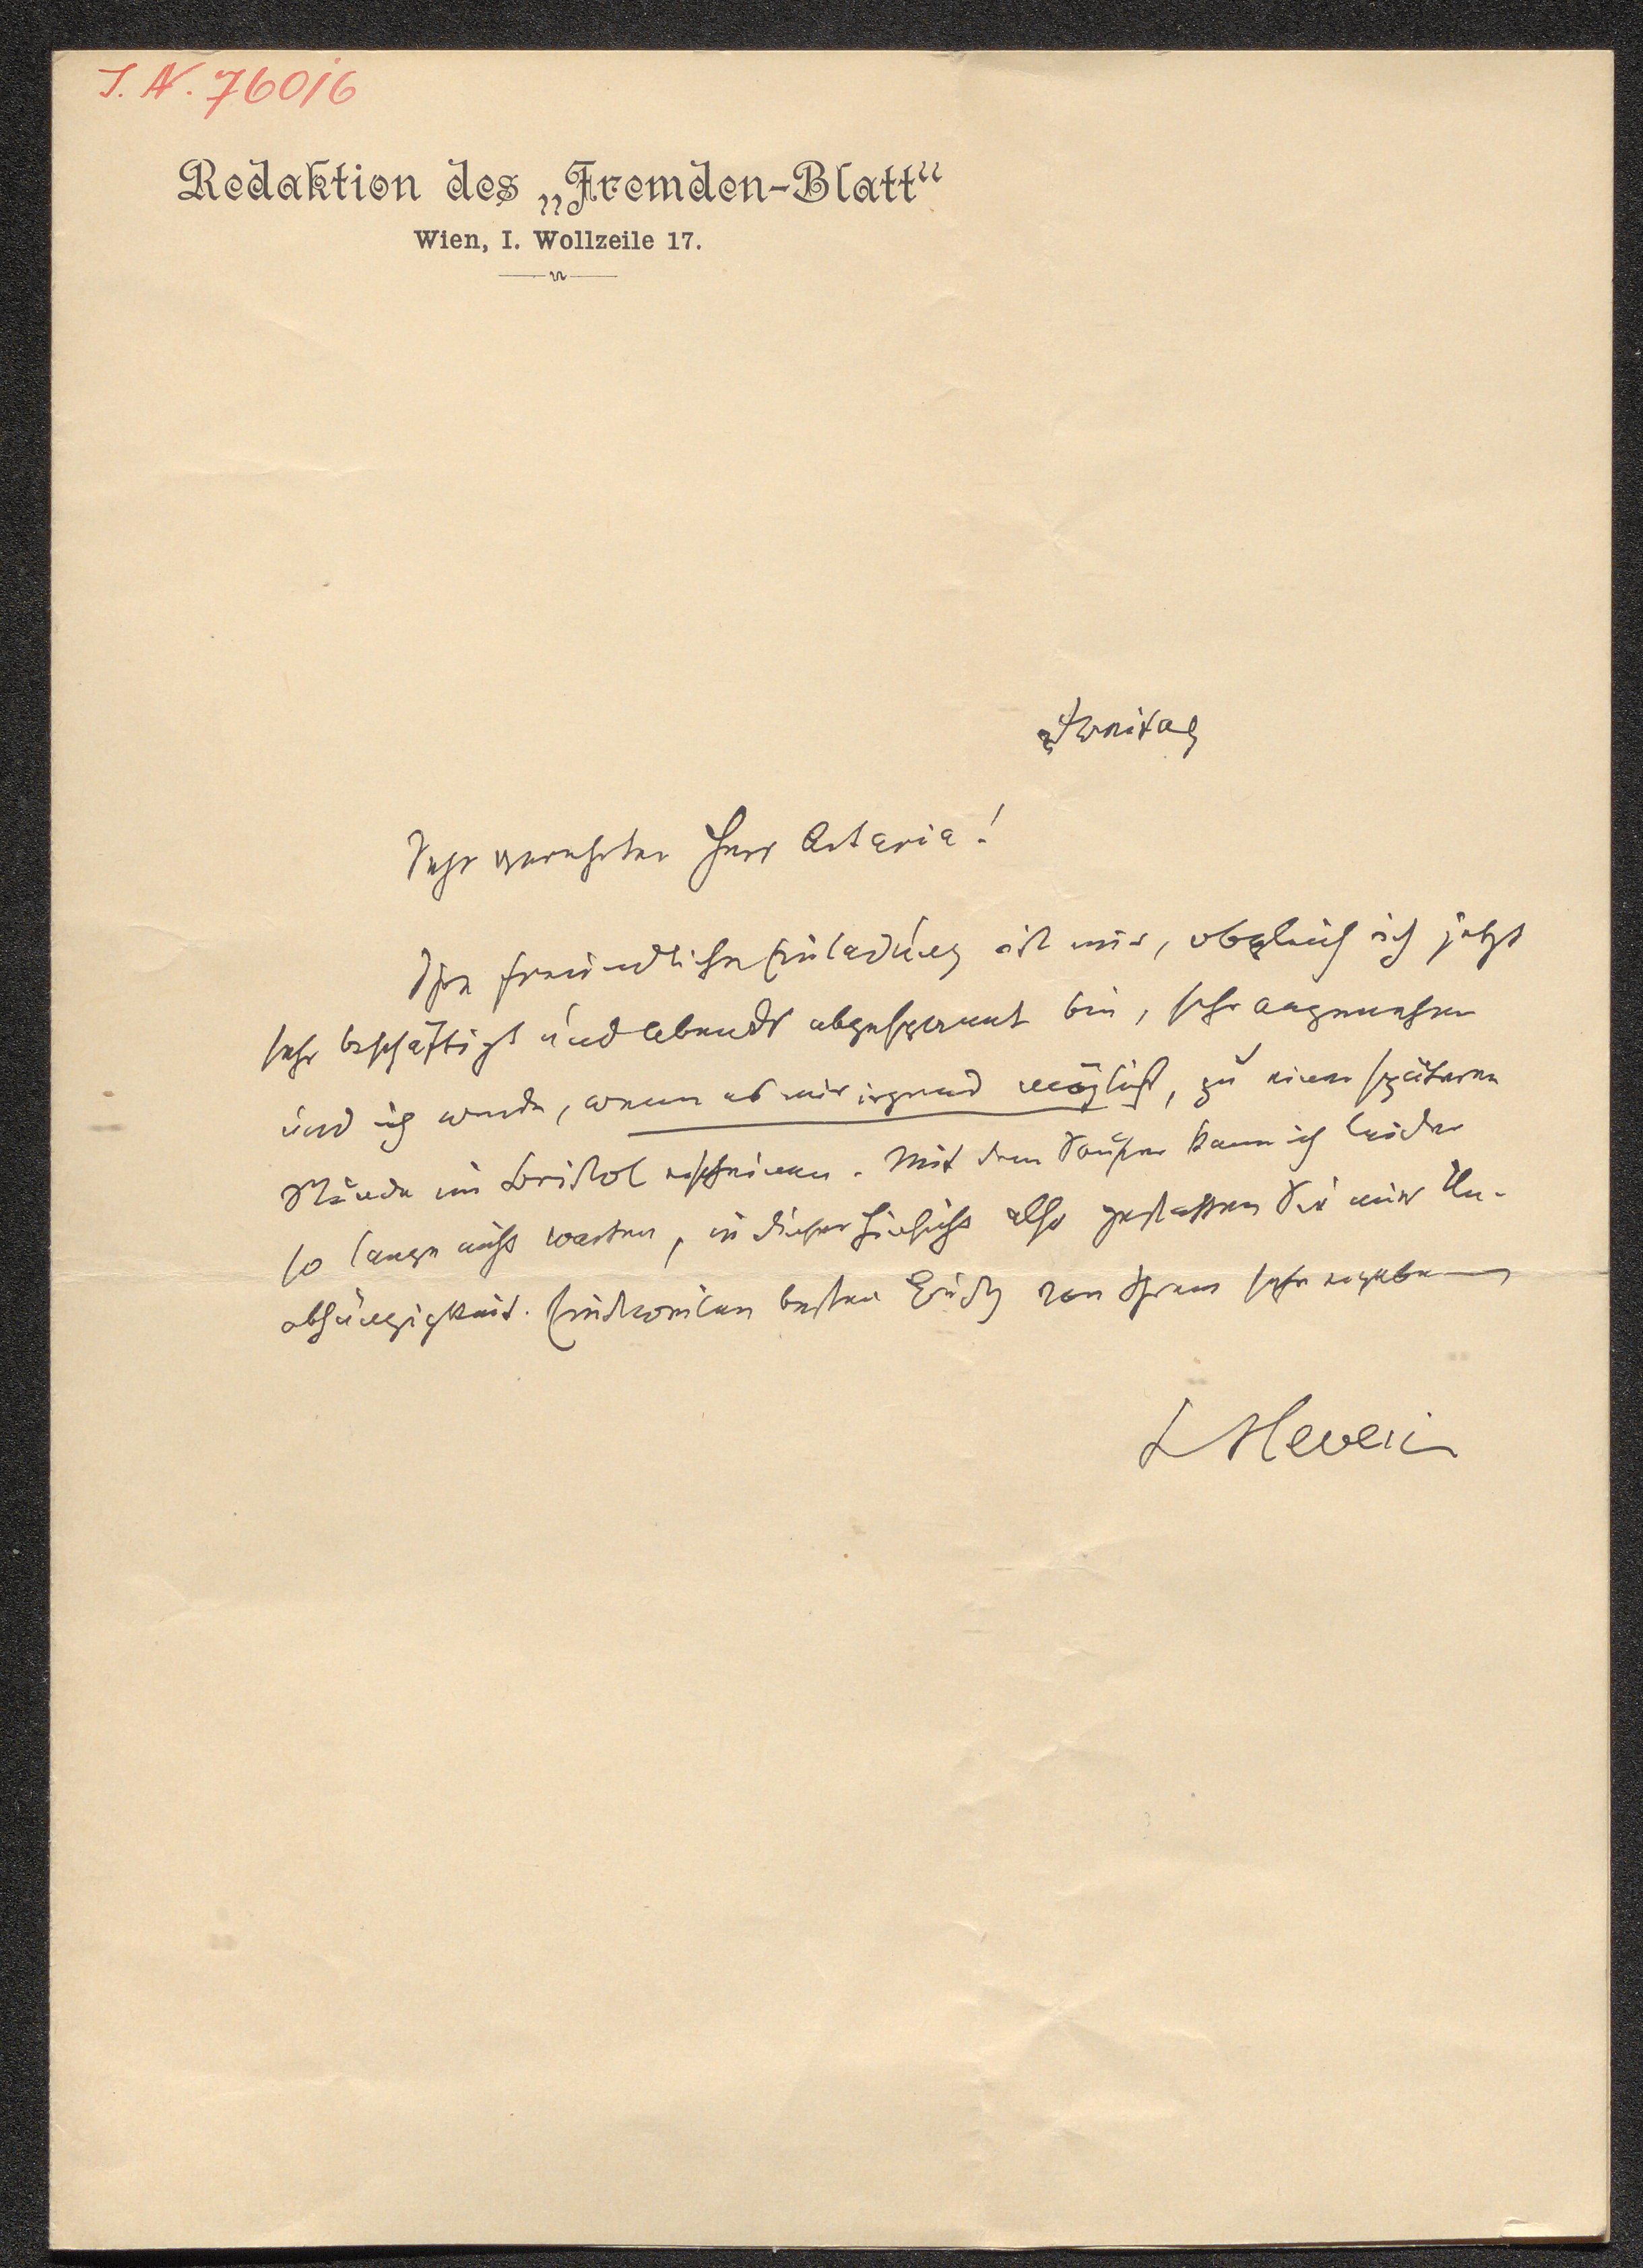 I. N. 76016
Redaktion des „Fremden-Blatt“
Wien, I. Wollzeile 17.
Freitag
Sehr verehrter Herr Artaria!
Ihre freundliche Einladung ist mir, obgleich ich jetzt
sehr beschäftigt und abends abgespannt bin, sehr angenehm
und ich werde, wenn es mir irgend möglich, zu einer späteren
Stunde im Bristol erscheinen. Mit dem Souper kann ich leider
so lange nicht warten, in dieser Hinsicht also gestatten Sie mir Un-
abhängigkeit. Einstweilen besten Gruß von Ihrem sehr ergebenen
L Hevesi